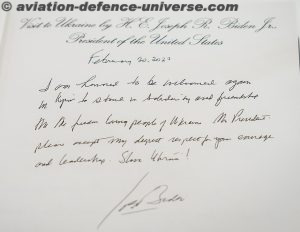 aviation-defence-universe.com
Visit to Ukraine by H. E. Joseph R. Biden Jr.
President of the United States
February 20, 2023
I am honored to be welcomed again
in Kyiv to stand in solidarity and friendship
with the freedom loving people of Ukraine. Mr President
please accept my deepest respect for your courage
and leadership. Slava Ukraini!
Joe Biden